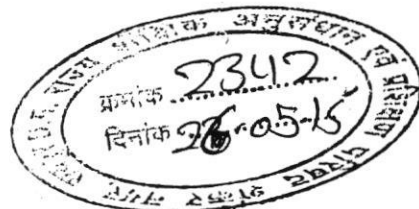 राज्य शैक्षिक अनुसंधान एवं प्रशिक्षण परिषद
क्रमांक 2342
दिनांक 26-05-15